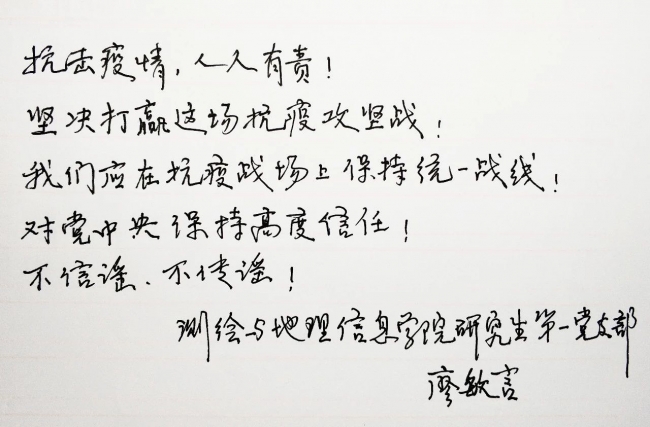 抗击疫情,人人有责!
坚决打赢这场抗疫攻坚战!
我们应在抗疫战场上保持统一战线!
对党中央保持高度信任!
不信谣、不传谣!
测绘与地理信息学院研究生第一党支部
廖敏言